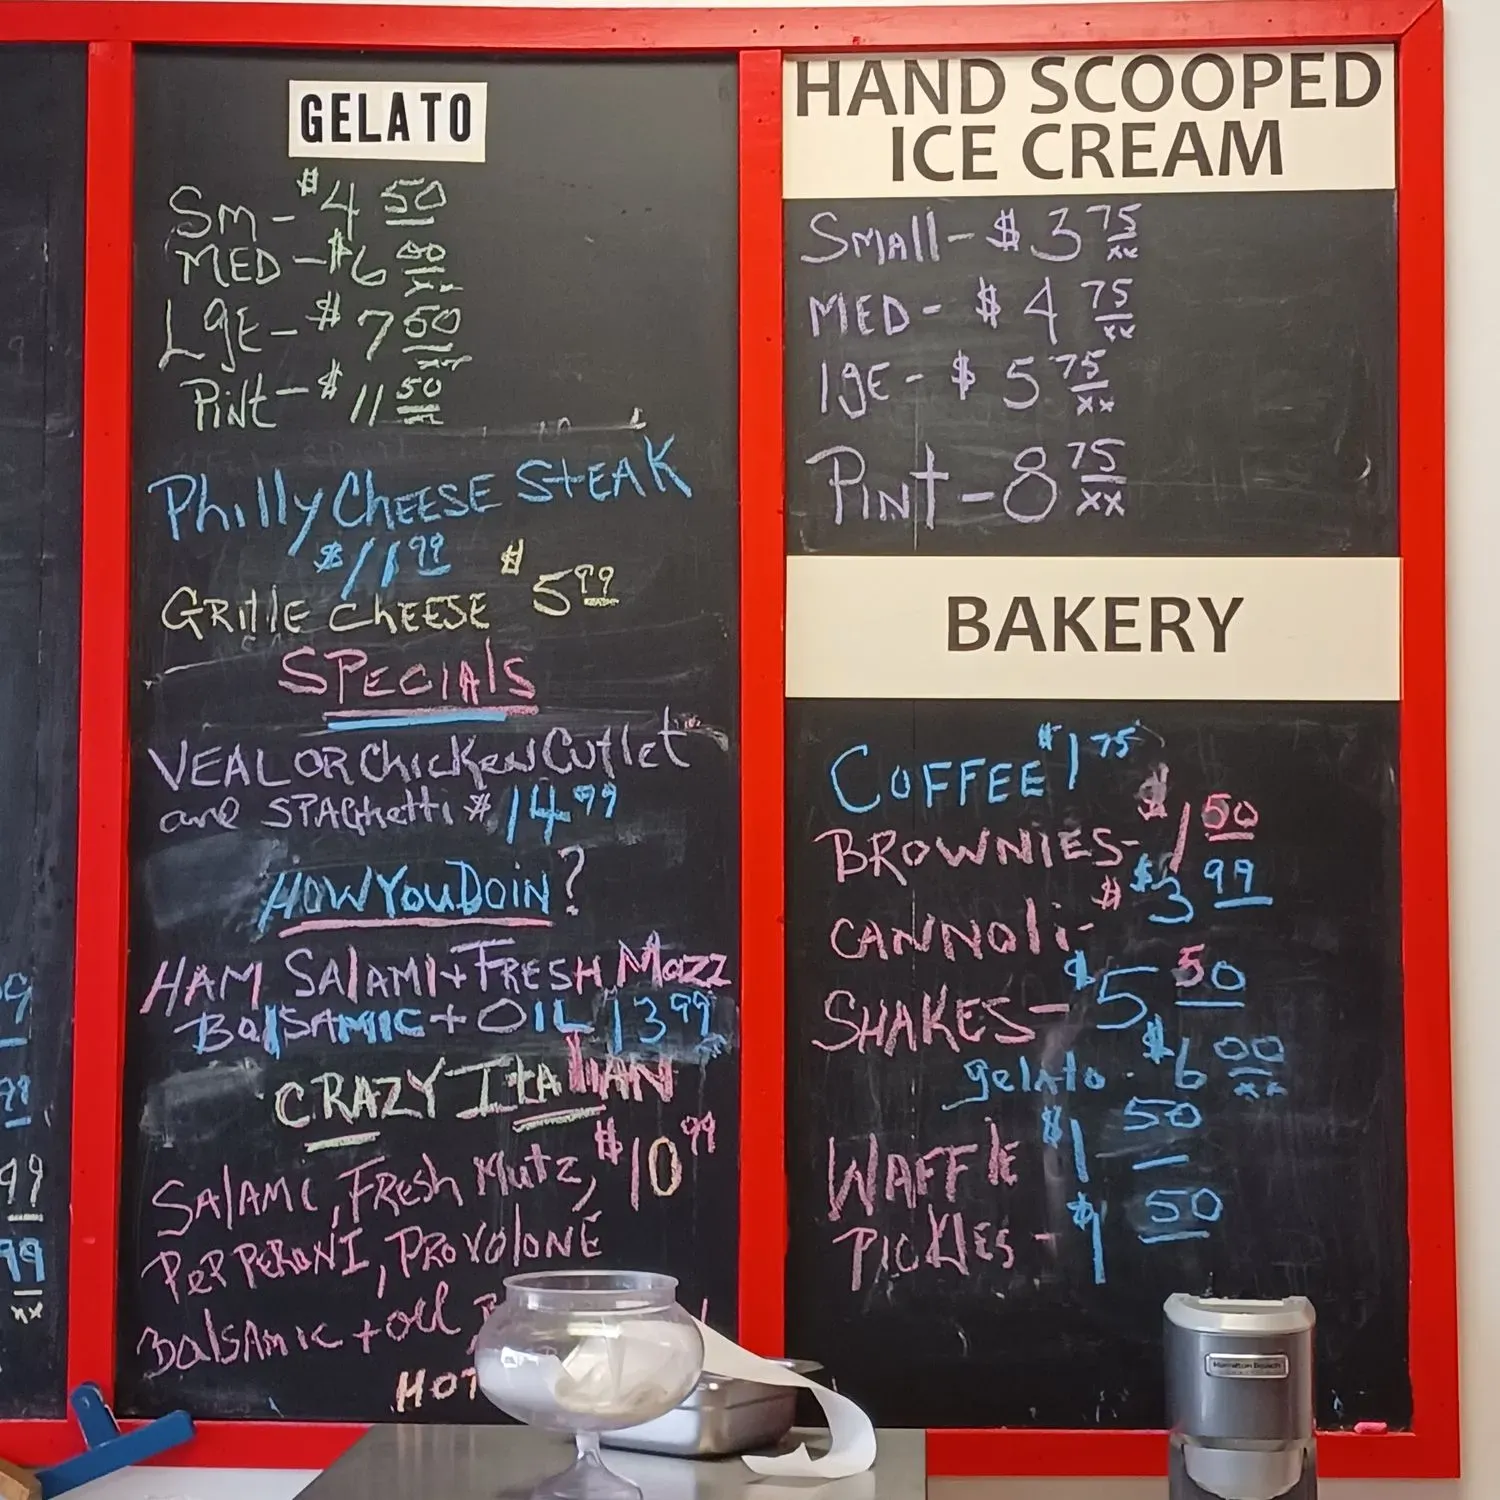 GELATO
Sm - $4 50
MED - $6 00 xx
LgE - $7 50 xx
Pint - $11 50
Philly CHEESE StEAK
$11.99
GRille CHEESE $5 99
SPECIAlS
VEAL OR ChicKen Cutlet
and SPAghetti $14.99
HOW YOU DOIN?
HAM SAlAMI + FRESH Mozz
BAlSAMIC + OIL 13 99
CRAZY ItAlIAN
SAlAMI, FRESh Mutz, $10 99
PEPPERONI, PROVOlONE
BalSAMIC + oil
HOT
9
99
99
99
xx
HAND SCOOPED
ICE CREAM
SMAll - $3 75 xx
MED - $4 75 xx
lgE - $5 75 xx
PINt - 8 75 xx
BAKERY
COFFEE $1 75
BROWNIES - $1 50
CANNOli - $3 99
SHAKES - $5 50
gelato - $6 00 xx
WAFFlE $1 50
PICKlES - $1 50
Hamilton Beach